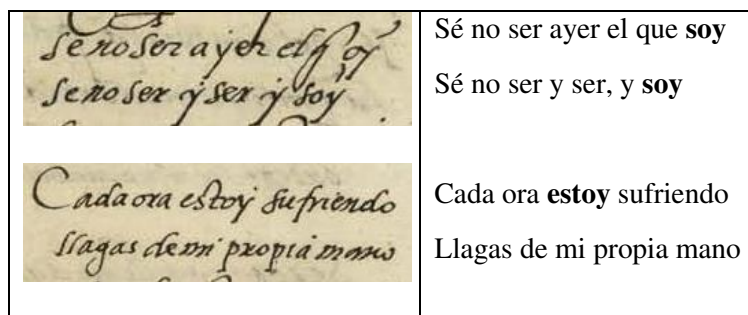 se no ser ayer el q̃ soy
se no ser ÿ ser ÿ soÿ
Sé no ser ayer el que soy
Sé no ser y ser, y soy
Cada ora estoÿ sufriendo
llagas de mi propia mano
Cada ora estoy sufriendo
Llagas de mi propia mano